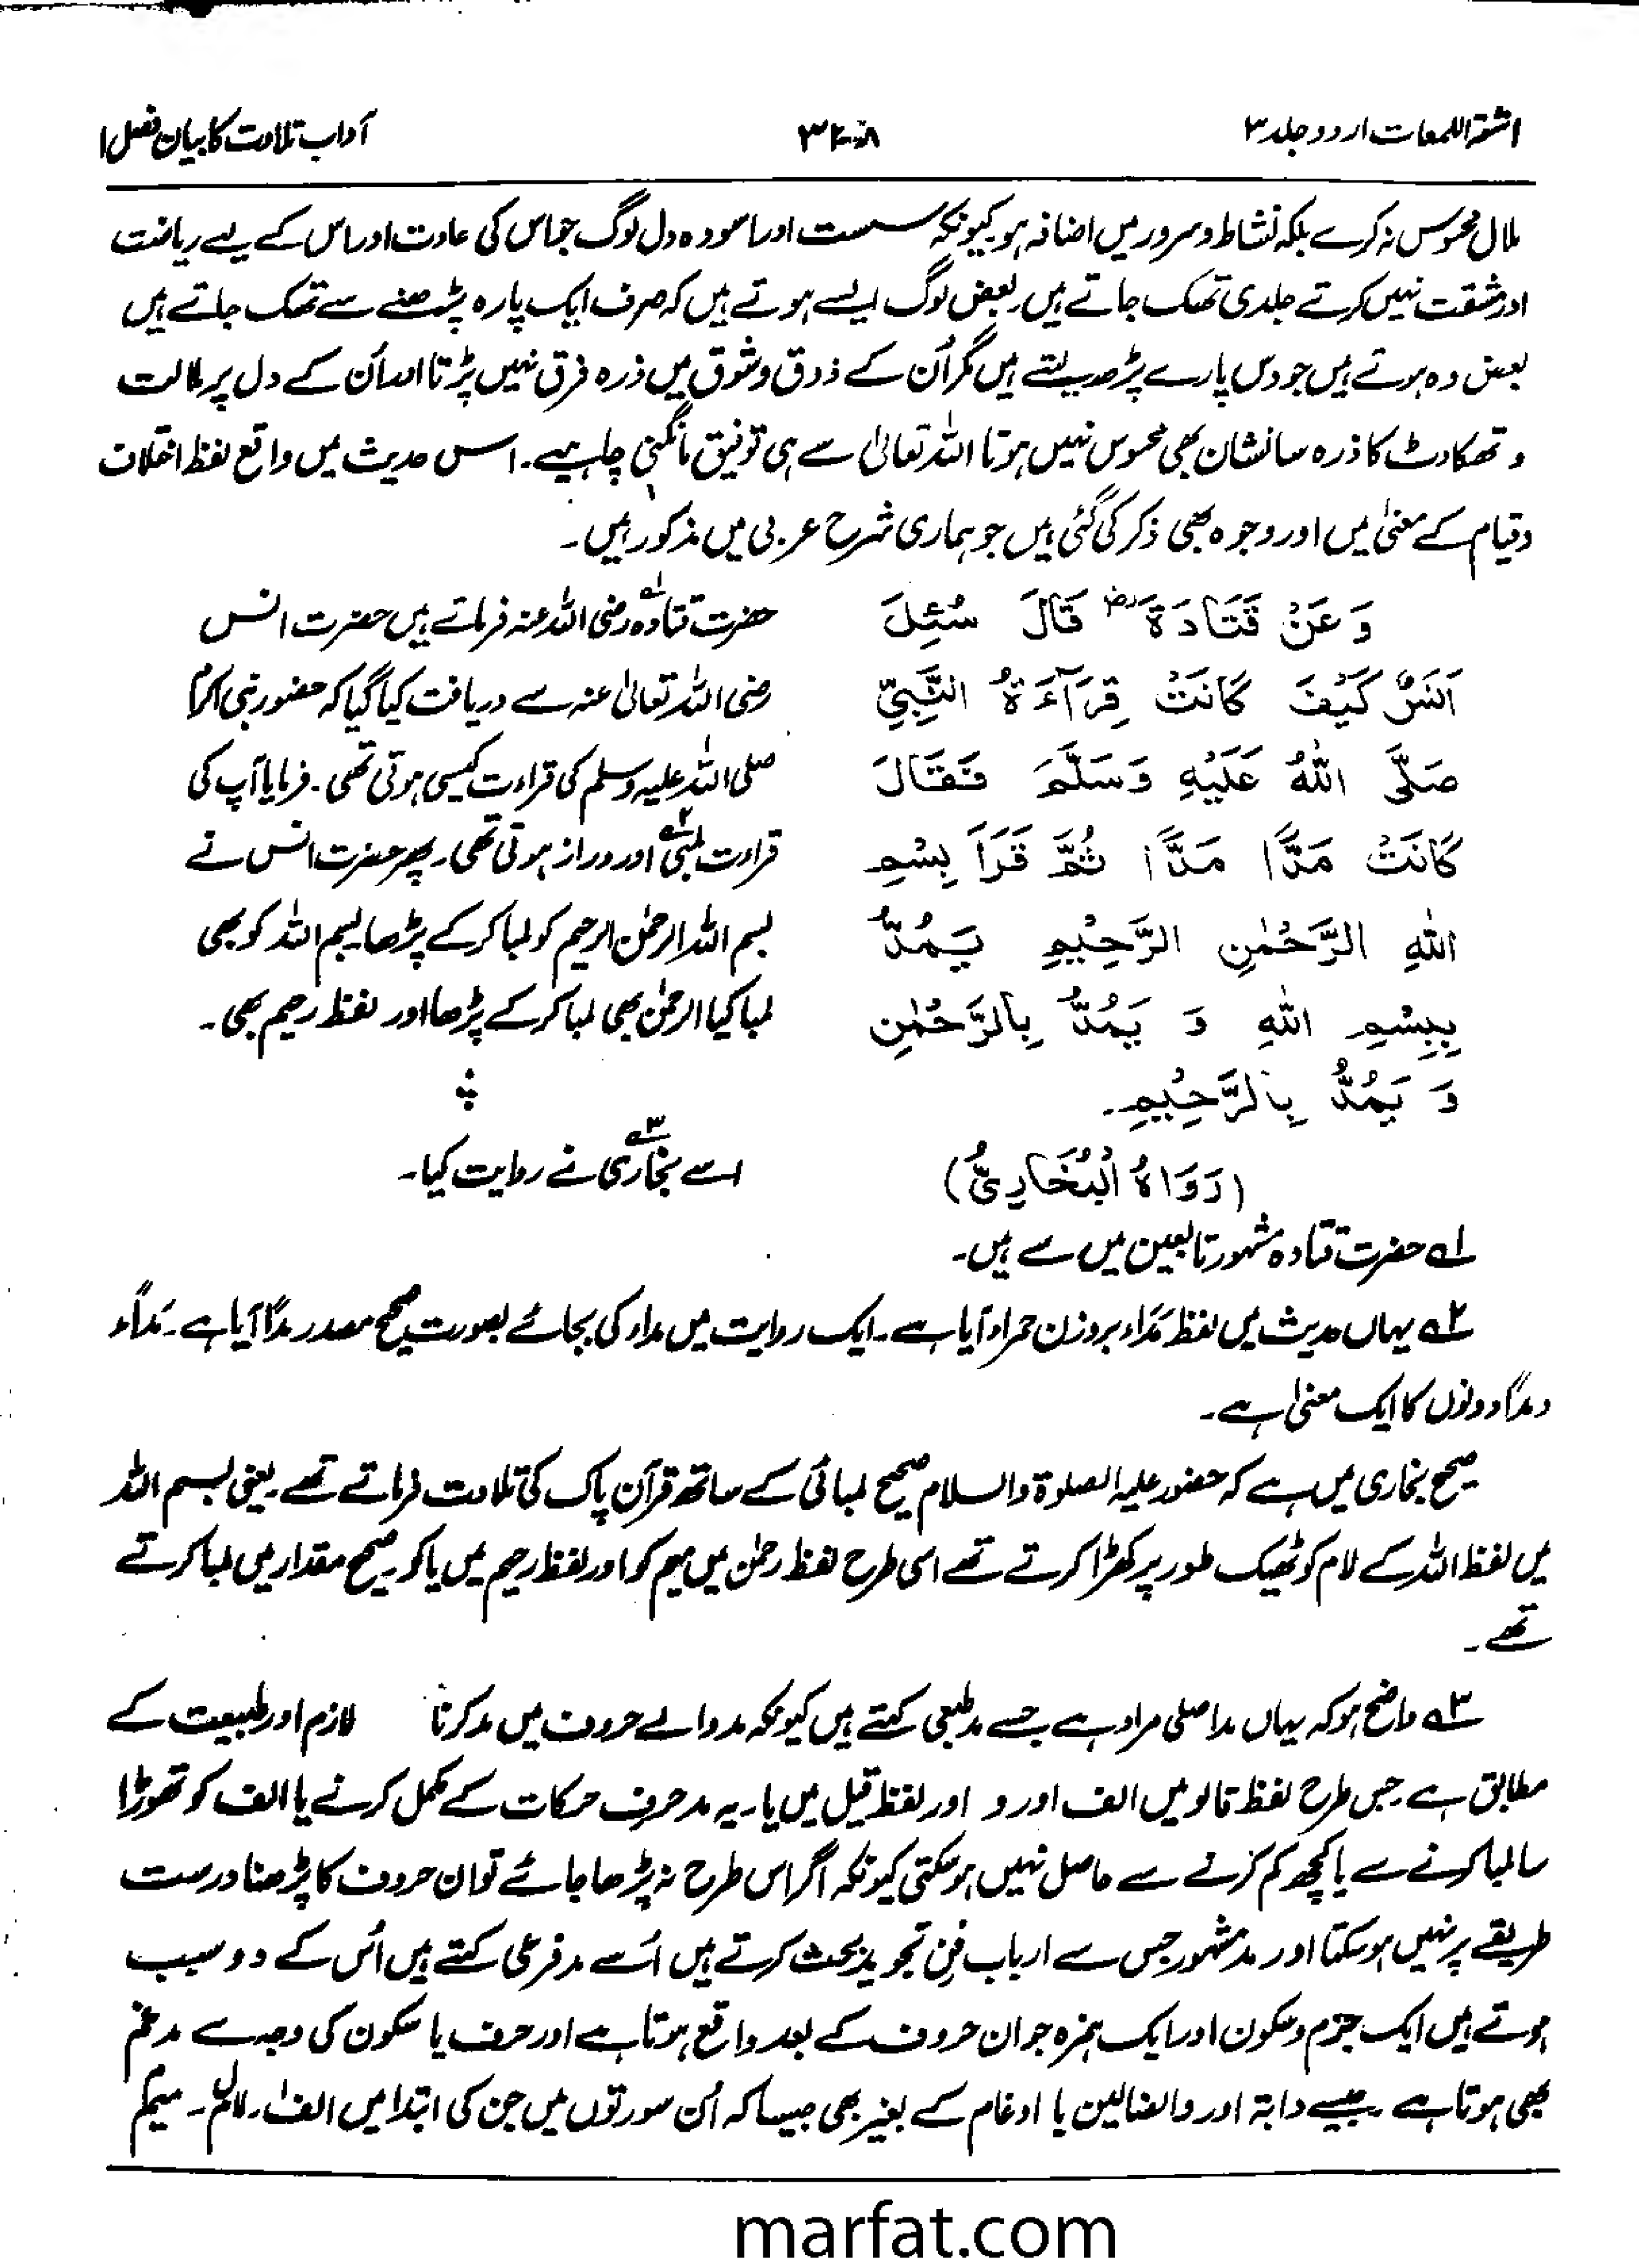 اشعۃ اللمعات اردو جلد ۳
آداب تلاوت کا بیان فصل ۱
ملال محسوس نہ کرے بلکہ نشاط و سرور میں اضافہ ہو۔ کیونکہ سست اور آسودہ دل لوگ جو اس کی عادت اور اس کے لیے ریاضت
اور مشقت نہیں کرتے جلدی تھک جاتے ہیں۔ بعض لوگ ایسے ہوتے ہیں کہ صرف ایک پارہ پڑھنے سے تھک جاتے ہیں
بعض وہ ہوتے ہیں جو دس پارے پڑھ لیتے ہیں مگر اُن کے ذوق و شوق میں ذرہ فرق نہیں پڑتا اور اُن کے دل پر ملالت
و تھکاوٹ کا ذرہ سا نشان بھی محسوس نہیں ہوتا اللہ تعالیٰ سے ہی توفیق مانگنی چاہیے۔ اس حدیث میں واقع لفظ اختلاف
و قیام کے معنیٰ میں اور وجوہ بھی ذکر کی گئی ہیں جو ہماری شرح عربی میں مذکور ہیں۔
وَعَنْ قَتَادَةَ رض قَالَ سُئِلَ
اَنَسٌ كَيْفَ كَانَتْ قِرَآءَةُ النَّبِيِّ
صَلَّى اللهُ عَلَيْهِ وَسَلَّمَ فَقَالَ
كَانَتْ مَدًّا مَدًّا ثُمَّ قَرَأَ بِسْمِ
اللهِ الرَّحْمٰنِ الرَّحِيْمِ يَمُدُّ
بِبِسْمِ اللهِ وَ يَمُدُّ بِالرَّحْمٰنِ
وَ يَمُدُّ بِالرَّحِيْمِ۔
(رَوَاهُ الْبُخَارِيُّ)
حضرت قتادہ۱؎ رضی اللہ عنہ فرماتے ہیں حضرت انس
رضی اللہ تعالیٰ عنہ سے دریافت کیا گیا کہ حضور نبی اکرم
صلی اللہ علیہ وسلم کی قراءت کیسی ہوتی تھی۔ فرمایا آپ کی
قراءت لمبی۲؎ اور دراز ہوتی تھی۔ پھر حضرت انس نے
بسم اللہ الرحمٰن الرحیم کو لمبا کرکے پڑھا بسم اللہ کو بھی
لمبا کیا الرحمٰن بھی لمبا کرکے پڑھا اور لفظ رحیم بھی۔
اسے بخاری۳؎ نے روایت کیا۔
۱؎ حضرت قتادہ مشہور تابعین میں سے ہیں۔
۲؎ یہاں حدیث میں لفظ مَدّاء بروزن حمراء آیا ہے۔ ایک روایت میں مداء کی بجائے بصورت صحیح مصدر مدًّا آیا ہے۔ مَدّاء
و مدًّا دونوں کا ایک معنیٰ ہے۔
صحیح بخاری میں ہے کہ حضور علیہ الصلوۃ والسلام صحیح لمبائی کے ساتھ قرآن پاک کی تلاوت فرماتے تھے۔ یعنی بسم اللہ
میں لفظ اللہ کے لام کو ٹھیک طور پر کھڑا کرتے تھے اسی طرح لفظ رحمٰن میں میم کو اور لفظ رحیم میں یا کو صحیح مقدار میں لمبا کرتے
تھے۔
۳؎ واضح ہو کہ یہاں مد اصلی مراد ہے جسے مد طبعی کہتے ہیں کیونکہ مد والے حروف میں مد کرنا لازم اور طبیعت کے
مطابق ہے۔ جس طرح لفظ قالو میں الف اور و اور لفظ قیل میں یا۔ یہ مد حرف حرکات کے مکمل کرنے یا الف کو تھوڑا
سا لمبا کرنے سے یا کچھ کم کرنے سے حاصل نہیں ہو سکتی کیونکہ اگر اس طرح نہ پڑھا جائے تو ان حروف کا پڑھنا درست
طریقے پر نہیں ہو سکتا اور مد مشہور جس سے ارباب فن تجوید بحث کرتے ہیں اُسے مد فرعی کہتے ہیں اُس کے دو سبب
ہوتے ہیں ایک جزم و سکون اور ایک ہمزہ جو ان حروف کے بعد واقع ہوتا ہے اور حرف یا سکون کی وجہ سے مدغم
بھی ہوتا ہے۔ جیسے دابۃ اور والضالین یا ادغام کے بغیر بھی جیسا کہ اُن سورتوں میں جن کی ابتدا میں الف۔ لام۔ میم
marfat.com